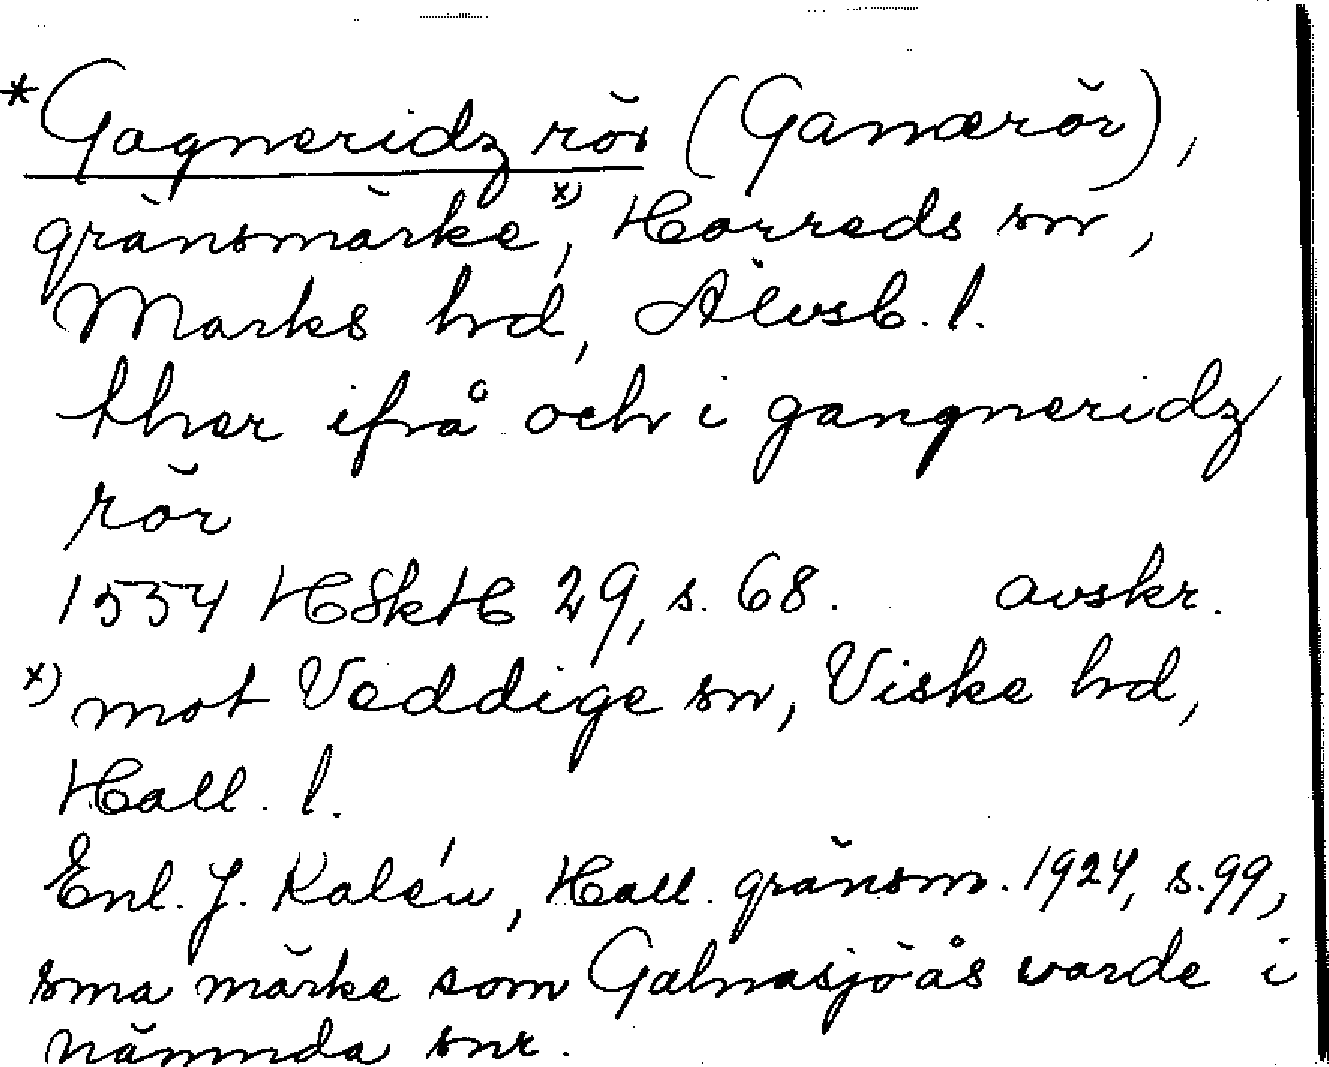 *Gagneridz rör (Gamærör),
gränsmärke x), Horreds sn,
Marks hd, Älvsb. l.
ther ifrå och i gangneridz
rör
1554 HSkH 29, s. 68. avskr.
x) mot Veddige sn, Viske hd,
Hall. l.
Enl. J. Kalén, Hall. gränsm. 1924, s. 99,
sma märke som Galnasjöås varde i
nämnda snr.